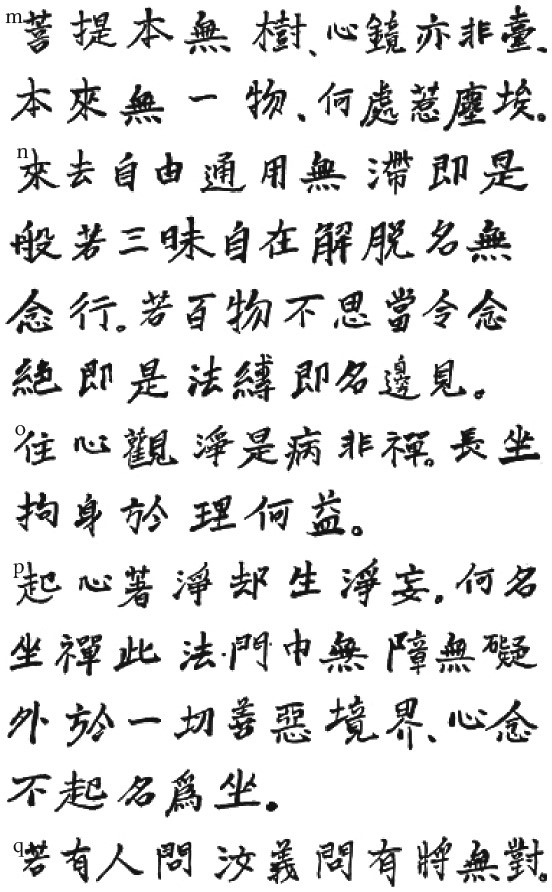 m菩提本無樹、心鏡亦非臺、
本來無一物、何處惹塵埃。
n來去自由通用無滯即是
般若三昧自在解脱名無
念行。若百物不思當令念
絶即是法縛即名邊見。
o住心觀淨是病非禪。長坐
拘身於理何益。
p起心著淨却生淨妄。何名
坐禪此法門巾無障無礙
外於一切善惡境界、心念
不起名爲坐。
q若有人問汝義問有將無對。